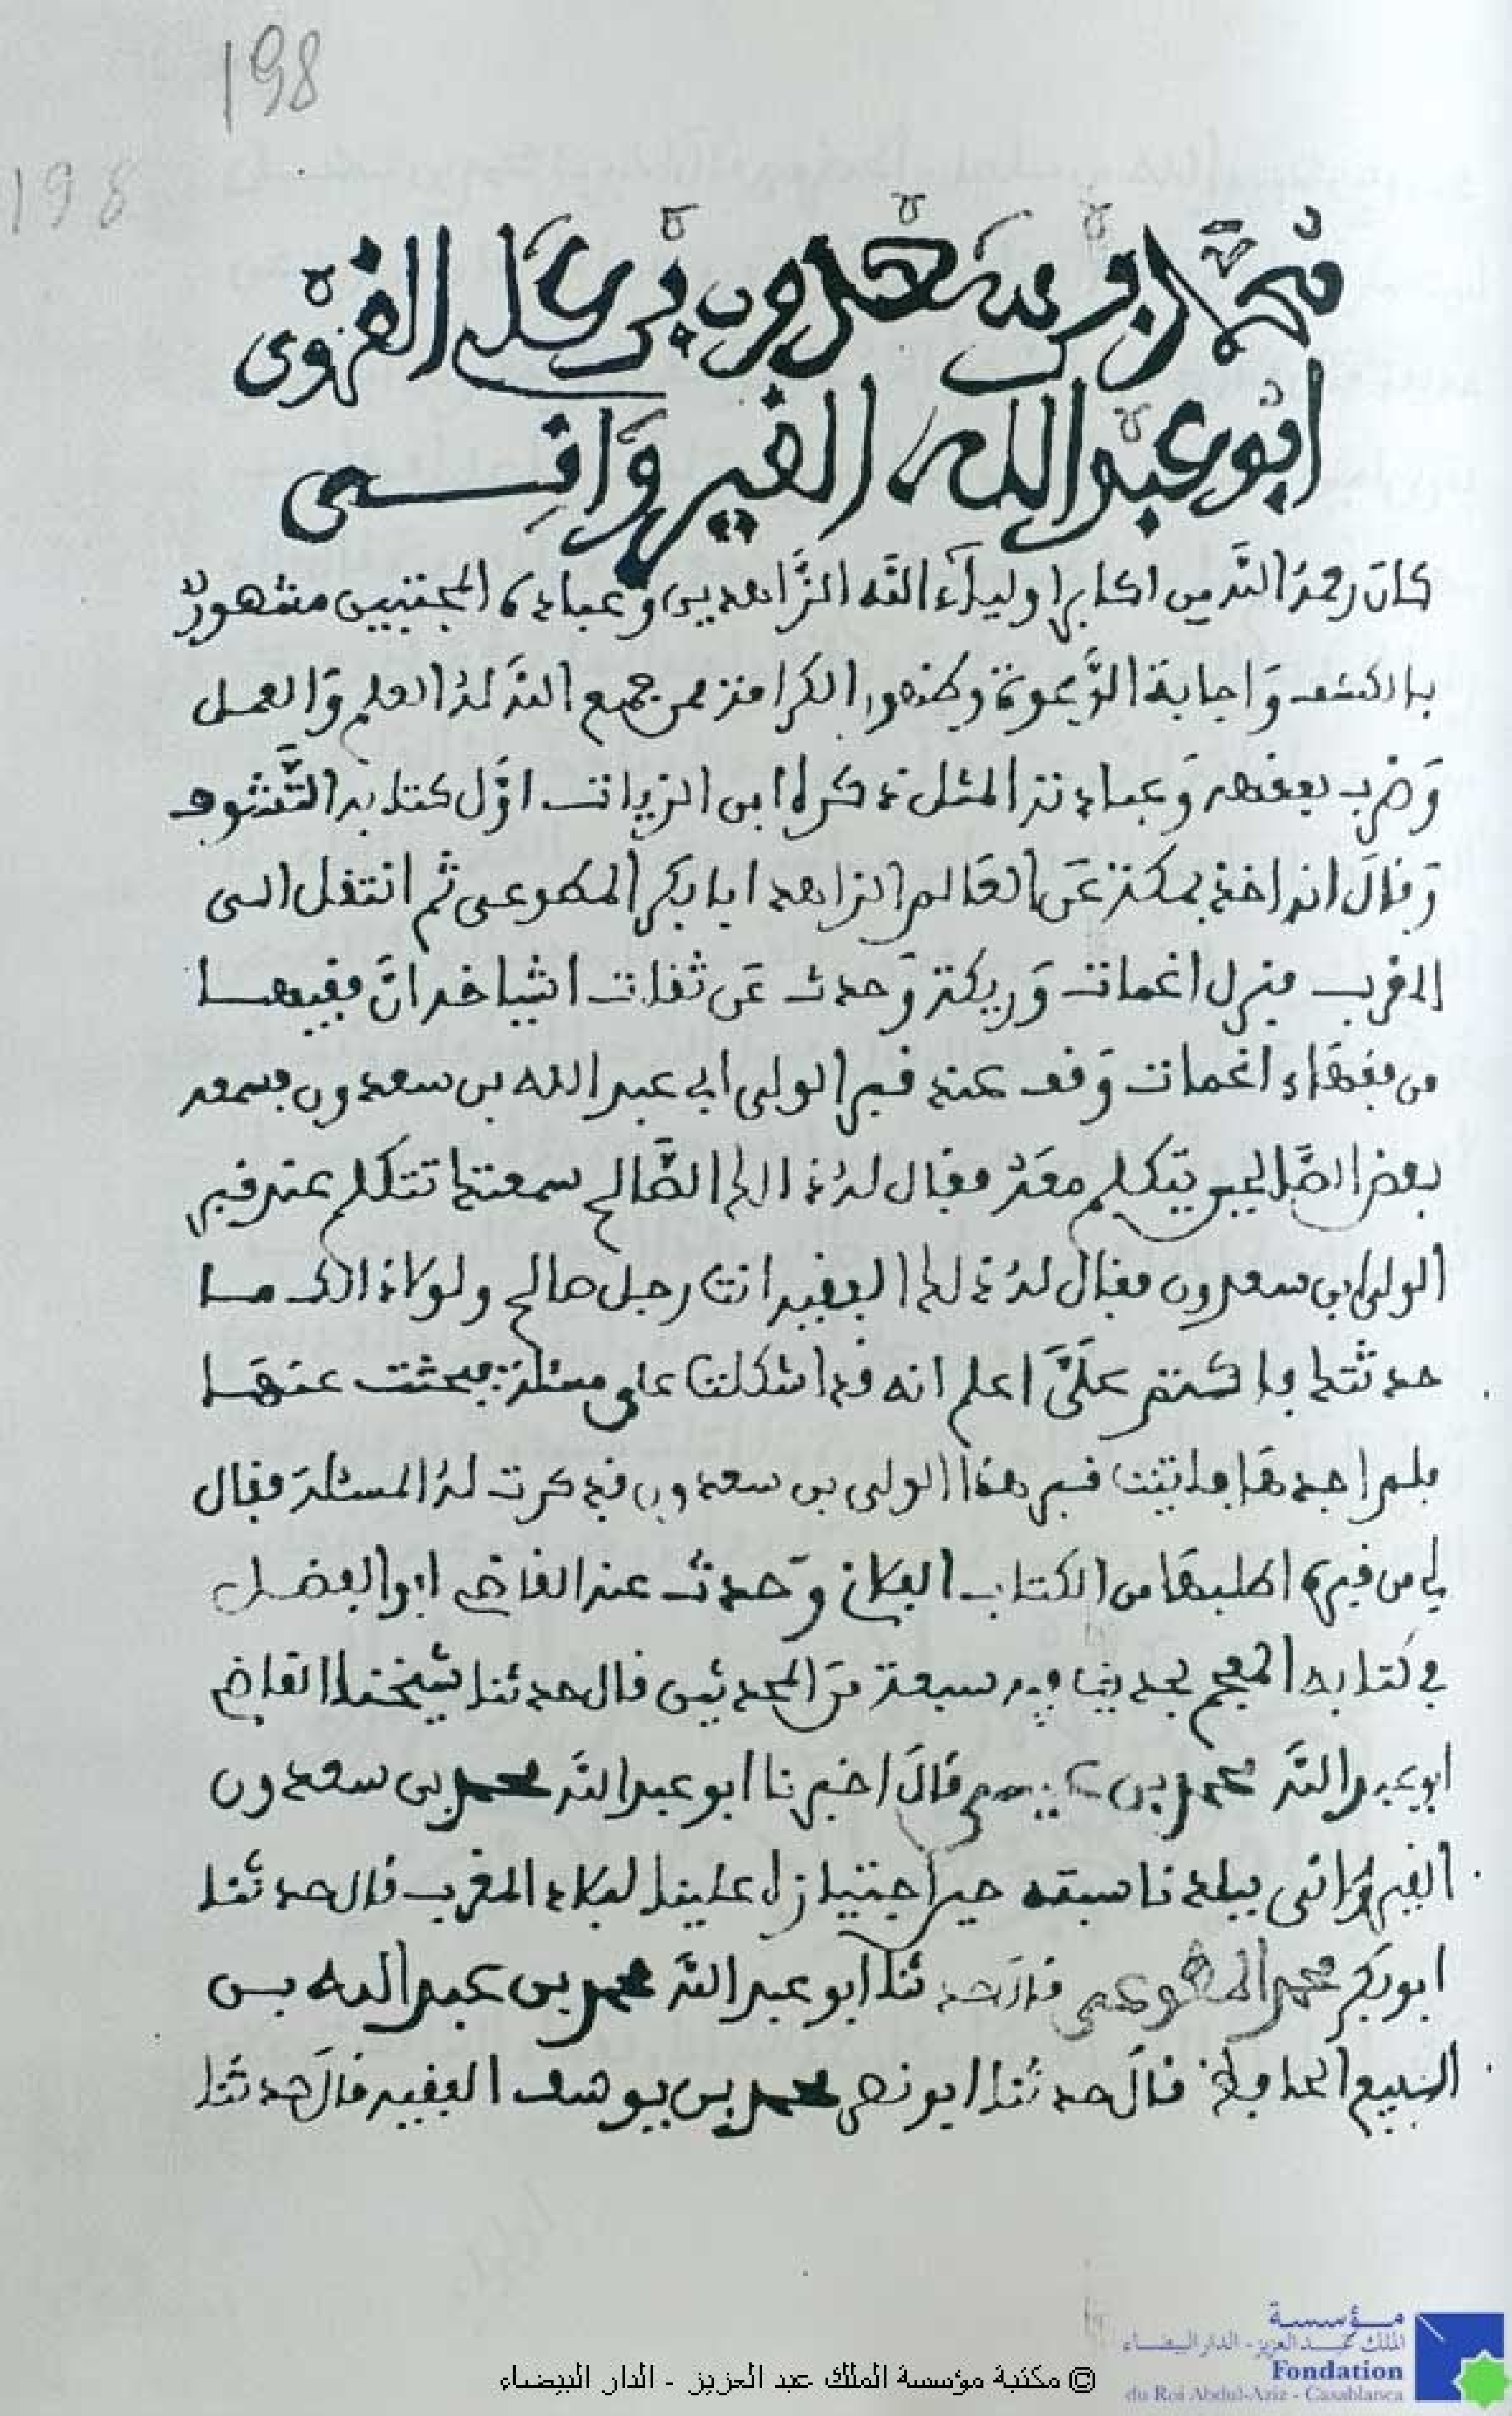 198
198
محمد بن سعدون بن علي القروي
ابو عبد الله القيرواني
كان رحمه الله من اكابر اولياء الله الزاهدين وعباده المجتبين مشهور
بالكشف واجابة الدعوة وظهور الكرامة ممن جمع الله له العلم والعمل
وضرب بفقهه وعبادته المثل ذكره ابن الزيات اول كتابه التشوف
وقال انه اخذ بمكة عن العالم الزاهد ابا بكر المطوعي ثم انتقل الى
المغرب فنزل اغمات وريكة وحدث عن ثقات اشياخه ان فقيها
من فقهاء اغمات وقف عند قبر الولي ابي عبد الله بن سعدون فسمعه
بعض الصالحين يتكلم معه فقال له ذالك الصالح سمعتك تتكلم عند قبر
الولي بن سعدون فقال له ذلك الفقيه انت رجل صالح ولولا ذالك ما
حدثتك فاكتم علي اعلم انه قد اشكلت علي مسئلة فبحثت عنها
فلم اجدها فاتيت قبر هذا الولي بن سعدون فذكرت له المسئلة فقال
لي من قبره اطلبها من الكتاب الفلاني وحدث عنه القاضي ابو الفضل
في كتابه المعجم بحديث فيه سبعة من المحمديين قال حدثنا شيخنا القاضي
ابو عبد الله محمد بن عيسى قال اخبرنا ابو عبد الله محمد بن سعدون
القيرواني ببلدنا سبتة حين اجتيازه علينا لبلاد المغرب قال حدثنا
ابو بكر محمد المطوعي قال حدثنا ابو عبد الله محمد بن عبد الله بن
البيع الحافظ قال حدثنا ابو نصر محمد بن يوسف الفقيه قال حدثنا
© مكتبة مؤسسة الملك عبد العزيز - الدار البيضاء
مؤسسة
الملك عبد العزيز - الدار البيضاء
Fondation
du Roi Abdul-Aziz - Casablanca